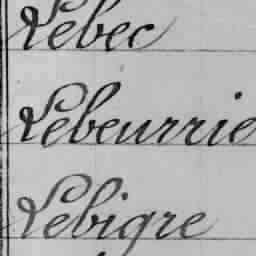 Lebec
Lebeurrie
Lebigre